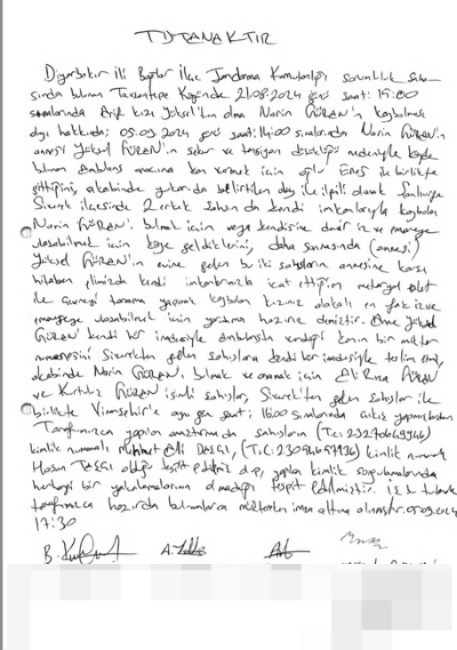 TUTANAKTIR
Diyarbakır İli Bağlar İlçe Jandarma Komutanlığı sorumluluk saha-
sında bulunan Tavşantepe Köyünde 21.08.2024 günü saat: 19:00
sıralarında Arif kızı Yüksel'den olma Narin GÜRAN'ın kaybolması
olayı hakkında; 05.09.2024 günü saat: 14:00 sıralarında Narin GÜRAN'ın
annesi Yüksel GÜRAN'ın şeker ve tansiyon düşüklüğü nedeniyle köyde
bulunan Ambulans aracına kan vermek için oğlu Enes ile birlikte
gittiğini, akabinde yukarıda belirtilen olay ile ilgili olarak Şanlıurfa
Siverek ilçesinde 2 erkek şahsın da kendi imkanlarıyla kaybolan
Narin GÜRAN'ı bulmak için veya kendisine dair iz ve emareye
ulaşabilmek için köye geldiklerini, daha sonrasında (annesi)
Yüksel GÜRAN'ın evine gelen bu iki şahısların annesine karşı
hitaben elimizde kendi imkanlarımızla icat ettiğim materyal alet
ile çevreyi tarama yaparak kaybolan kızınız alakalı en fazla ize ve
emareye ulaşabilmek için yardıma hazırız demiştir. Yüksel
GÜRAN kendi hür iradesiyle ambulansta verdiği kanın bir miktar
numunesini Siverekten gelen şahıslara kendi hür iradesiyle teslim etmiş,
akabinde Narin GÜRAN'ı bulmak ve aramak için Ali Rıza GÜRAN
ve Kurtuluş GÜRAN isimli şahıslar, Siverek'ten gelen şahıslar ile
birlikte Viranşehir'e aynı gün saat: 16:00 sıralarında çıkış yapmışlardır.
Tarafımızca yapılan araştırmada şahısların (T.C:
kimlik numaralı Mehmet Ali (T.C:
kimlik numaralı
Hasan olduğu tespit edilmiş olup, yapılan kimlik sorgulamalarında
herhangi bir yakalamalarının olmadığı tespit edilmiştir. İş bu tutanak
tarafımızca hazırda bulunanlarca müştereken imza altına alınmıştır. 05.09.2024
17:30